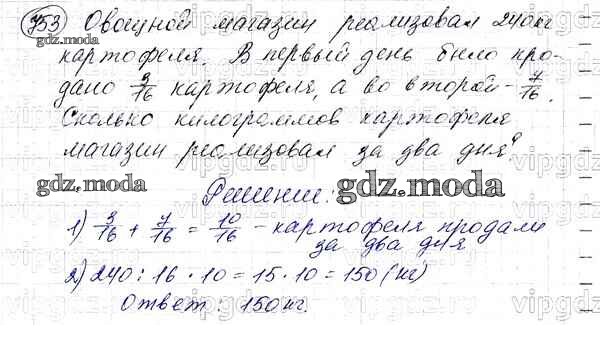 753 Овощной магазин реализовал 240 кг
картофеля. В первый день было про-
дано 3/16 картофеля, а во второй - 7/16.
Сколько килограммов картофеля
магазин реализовал за два дня?
Решение:
1) 3/16 + 7/16 = 10/16 - картофеля продали
за два дня
2) 240 : 16 · 10 = 15 · 10 = 150 (кг)
Ответ: 150 кг.
gdz.moda
gdz.moda
gdz.moda
vipgdz